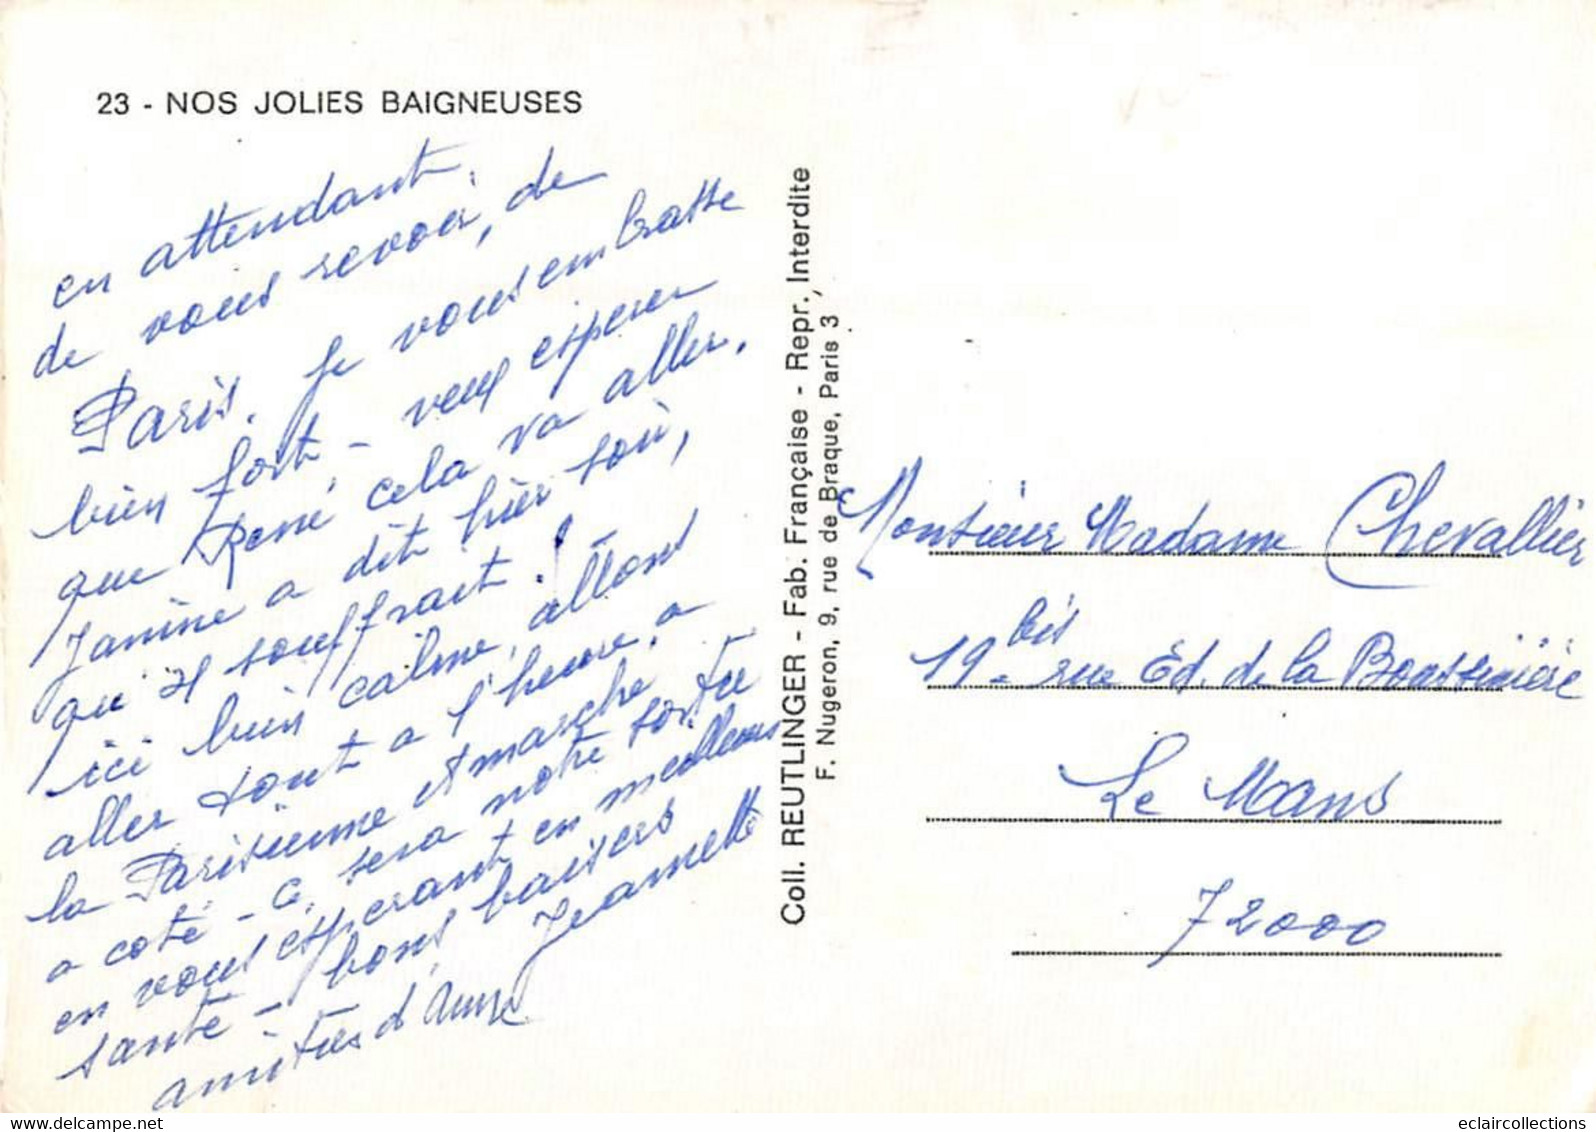 23 - NOS JOLIES BAIGNEUSES
en attendant.
de vous revoir, de
Paris. Je vous embrasse
bien fort, - veux esperer
que René cela va aller.
Janine a dit hier soir,
qu'il souffrait !
ici bien calme, allons
aller tout a l'heure, a
la Parisienne et marche
a coté - ça sera notre sortie
en vous esperant en meilleurs
santé - bons baisers
amitiés d'Anne Jeannette
Coll. REUTLINGER - Fab. Française - Repr. Interdite
F. Nugeron, 9, rue de Braque, Paris 3
Monsieur Madame Chevallier
19 bis rue Ed. de la Boussinière
Le Mans
72000
www.delcampe.net
eclaircollections